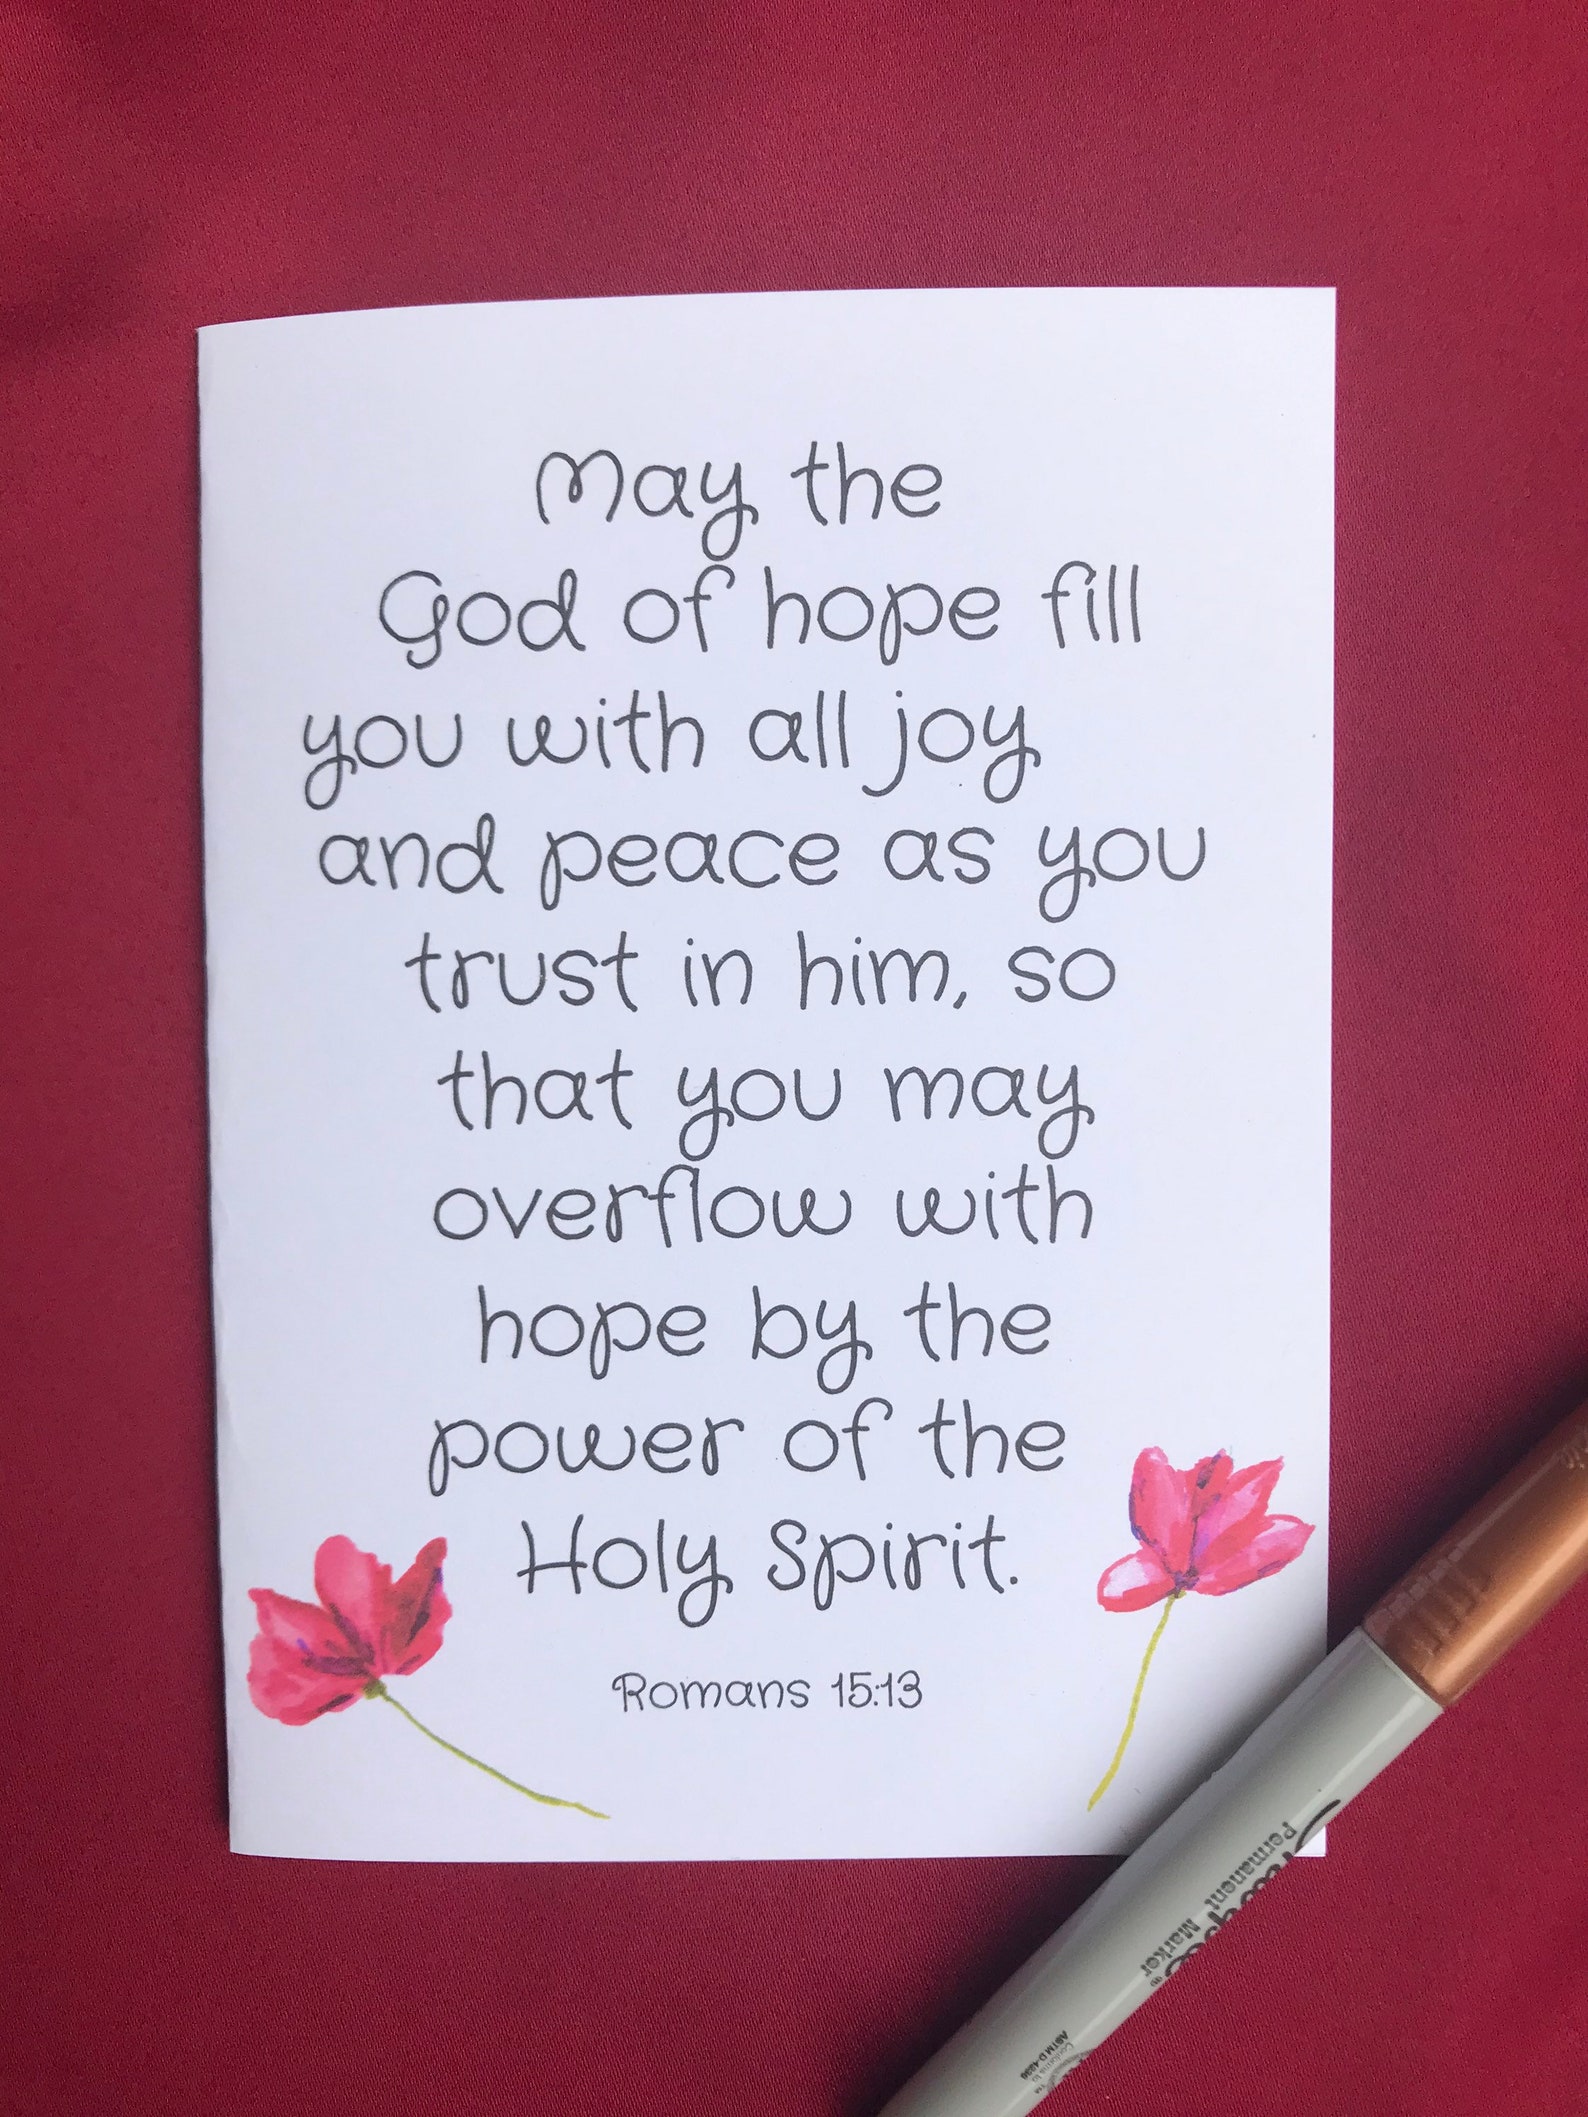 May the
God of hope fill
you with all joy
and peace as you
trust in him, so
that you may
overflow with
hope by the
power of the
Holy Spirit.
Romans 15:13
Permanent Marker
Conforms to
ASTM D-4236